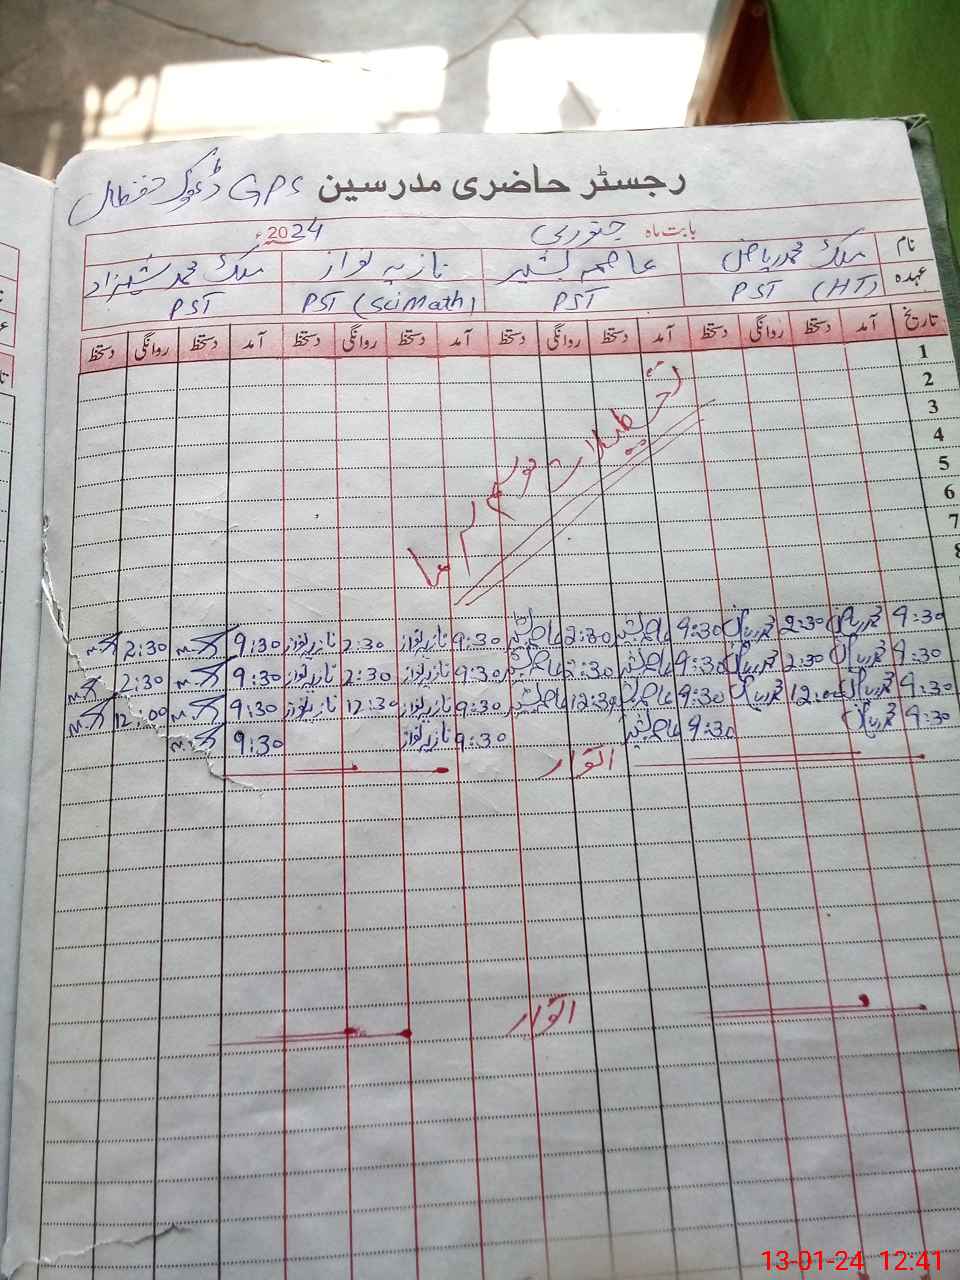 رجسٹر حاضری مدرسین GPS ڈھوک
بابت ماہ جنوری 2024ء
نام ملک محمد ریاض عاصمہ بشیر نازیہ نواز ملک محمد شہزاد
عہدہ PST (HT) PST PST (Sci Math) PST
تاریخ آمد دستخط روانگی دستخط آمد دستخط روانگی دستخط آمد دستخط روانگی دستخط آمد دستخط روانگی دستخط
1
2
3
4
5
6
7
8
تعطیلات موسم سرما
9:30 محمد ریاض 2:30 محمد ریاض 9:30 عاصمہ بشیر 2:30 عاصمہ بشیر 9:30 نازیہ نواز 2:30 نازیہ نواز 9:30 2:30
9:30 محمد ریاض 2:30 محمد ریاض 9:30 عاصمہ بشیر 2:30 عاصمہ بشیر 9:30 نازیہ نواز 2:30 نازیہ نواز 9:30 2:30
9:30 محمد ریاض 12:00 محمد ریاض 9:30 عاصمہ بشیر 12:30 عاصمہ بشیر 9:30 نازیہ نواز 12:30 نازیہ نواز 9:30 12:00
9:30 محمد ریاض 9:30 عاصمہ بشیر 9:30 نازیہ نواز 9:30
اتوار
اتوار
13-01-24 12:41